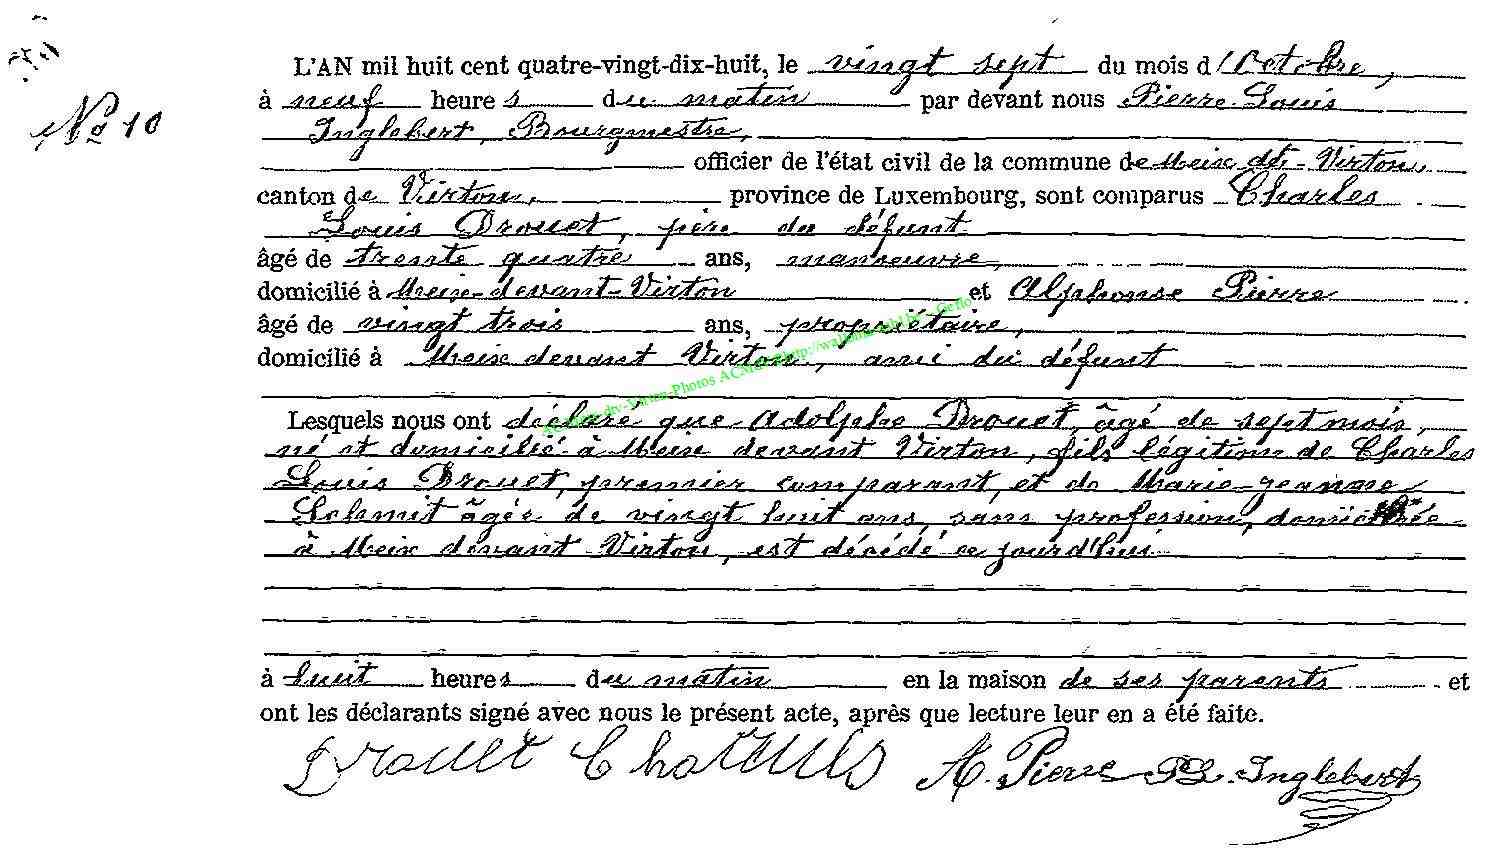 L'AN mil huit cent quatre-vingt-dix-huit, le vingt sept du mois d'Octobre,
No 10
à neuf heures du matin par devant nous Pierre Louis
Inglebert, Bourgmestre,
officier de l'état civil de la commune de Meix dt Virton,
canton de Virton, province de Luxembourg, sont comparus Charles
Louis Drouet, père du défunt
âgé de trente quatre ans, manoeuvre,
domicilié à Meix-devant-Virton et Alphonse Pierre
âgé de vingt trois ans, propriétaire,
domicilié à Meix devant Virton, ami du défunt
Lesquels nous ont déclaré que Adolphe Drouet, âgé de sept mois,
né et domicilié à Meix devant Virton, fils légitime de Charles
Louis Drouet, premier comparant, et de Marie-Jeanne
Schmit âgée de vingt huit ans, sans profession, domiciliée
à Meix devant Virton, est décédé ce jourd'hui
à huit heures du matin en la maison de ses parents et
ont les déclarants signé avec nous le présent acte, après que lecture leur en a été faite.
Drouet Charles A. Pierre PL. Inglebert